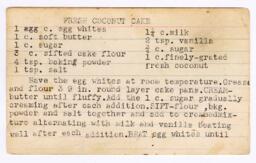 FRESH COCONUT CAKE
1 egg c. egg whites
1 c. soft butter
1 c. sugar
3 c. sifted cake flour
4 tsp. baking powder
1 tsp. salt
1½ c. milk
2 tsp. vanilla
½ c. sugar
1 c. finely-grated
fresh coconut
Have the egg whites at room temperature. Grease
and flour 3 9 in. round layer cake pans. CREAM-
butter until fluffy. Add the 1 c. sugar gradually
creaming after each addition. SIFT-flour, bkg.
powder and salt together and add to creamed mix-
ture alternating with milk and vanilla beating
well after each addition. BEAT egg whites until